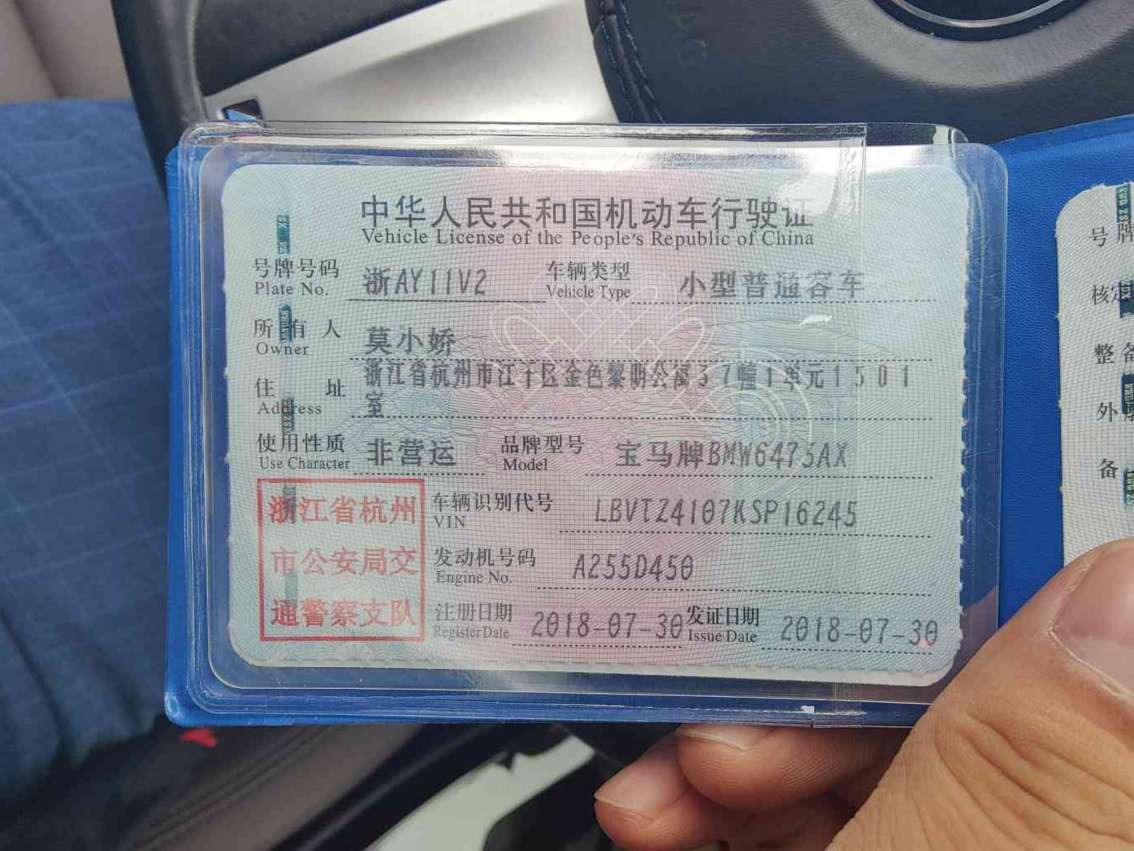 中华人民共和国机动车行驶证
Vehicle License of the People's Republic of China
号牌号码 浙AY11V2 车辆类型 小型普通客车
Plate No. Vehicle Type
所有人 莫小娇
Owner
住址 浙江省杭州市江干区金色黎明公寓37幢1单元1501
Address 室
使用性质 非营运 品牌型号 宝马牌BMW6475AX
Use Character Model
浙江省杭州 车辆识别代号 LBVTZ4107KSP16245
VIN
市公安局交 发动机号码 A255D450
Engine No.
通警察支队 注册日期 2018-07-30 发证日期 2018-07-30
Register Date Issue Date
号牌
核定
整备
外
备